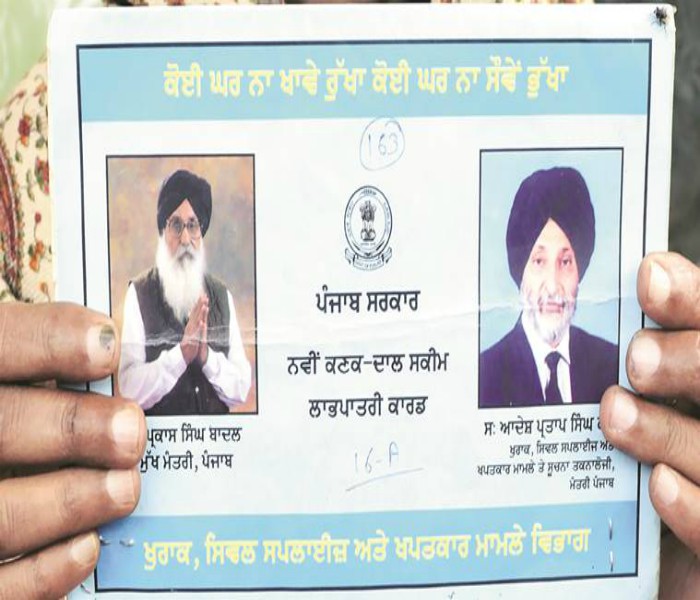 ਕੋਈ ਘਰ ਨਾ ਖਾਵੇ ਰੁੱਖਾ ਕੋਈ ਘਰ ਨਾ ਸੌਵੇਂ ਭੁੱਖਾ
163
ਪੰਜਾਬ ਸਰਕਾਰ
ਨਵੀਂ ਕਣਕ-ਦਾਲ ਸਕੀਮ
ਲਾਭਪਾਤਰੀ ਕਾਰਡ
16-A
ਪ੍ਰਕਾਸ ਸਿੰਘ ਬਾਦਲ
ਮੁੱਖ ਮੰਤਰੀ, ਪੰਜਾਬ
ਸ: ਆਦੇਸ਼ ਪ੍ਰਤਾਪ ਸਿੰਘ
ਖੁਰਾਕ, ਸਿਵਲ ਸਪਲਾਈਜ਼ ਅਤੇ
ਖਪਤਕਾਰ ਮਾਮਲੇ ਤੇ ਸੂਚਨਾ ਤਕਨਾਲੋਜੀ,
ਮੰਤਰੀ ਪੰਜਾਬ
ਖੁਰਾਕ, ਸਿਵਲ ਸਪਲਾਈਜ਼ ਅਤੇ ਖਪਤਕਾਰ ਮਾਮਲੇ ਵਿਭਾਗ